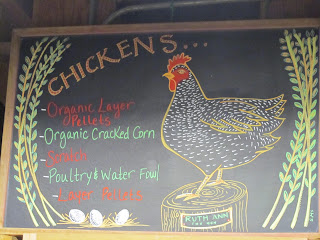 CHICKENS...
-Organic Layer
Pellets
-Organic Cracked Corn
-Poultry & Water Fowl
-Layer
RUTH ANN
THE HEN